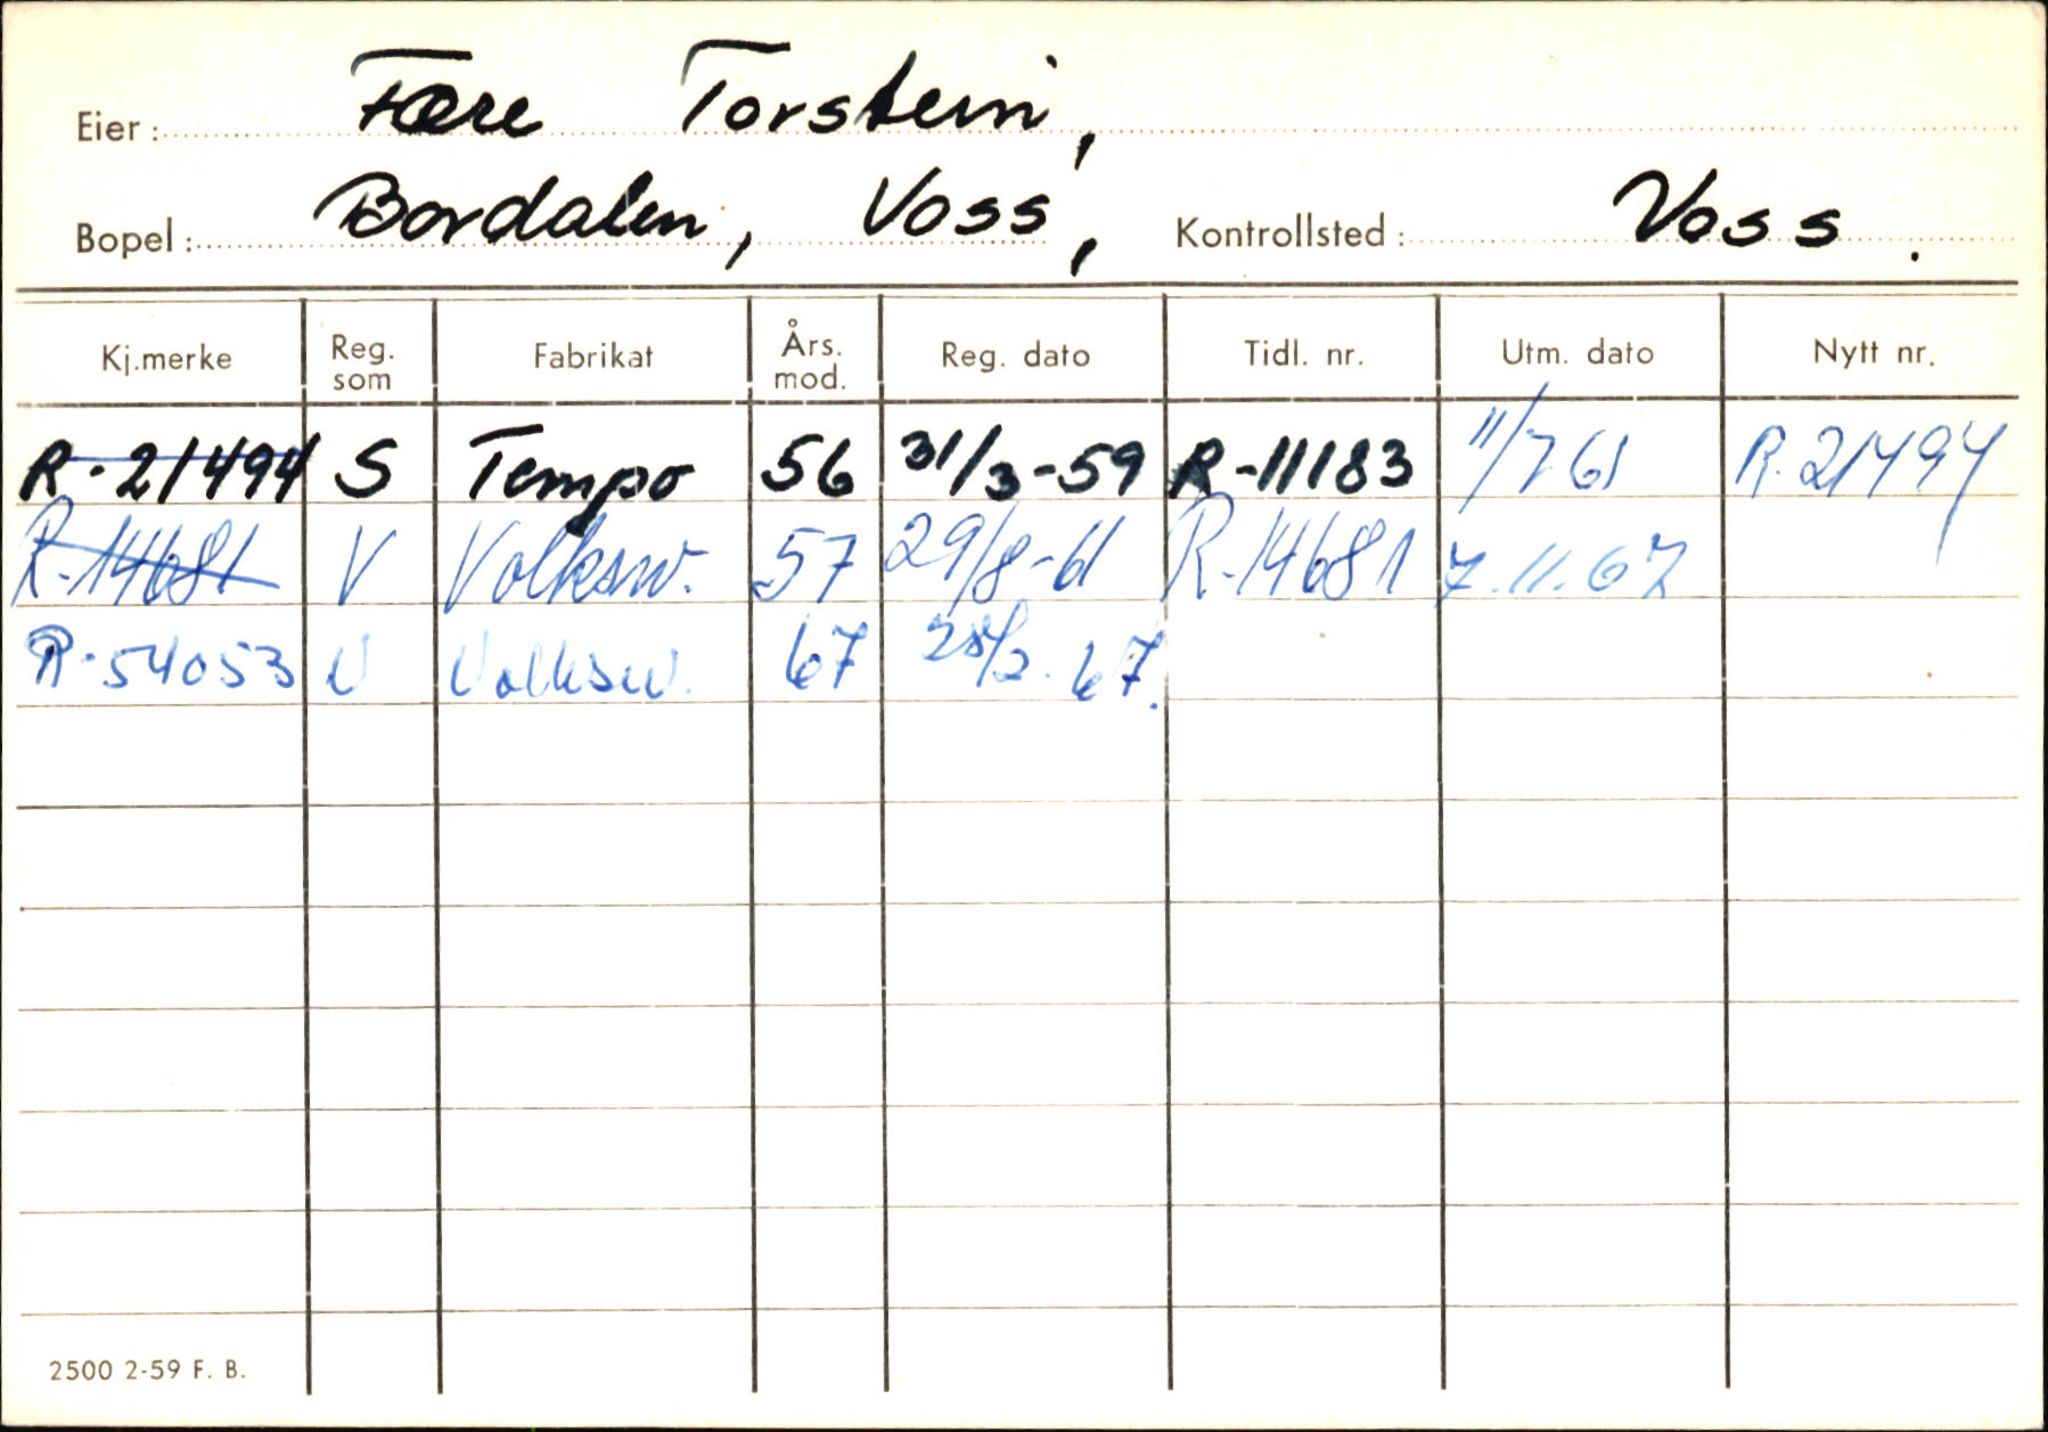 Eier: Fære Torstein,
Bopel: Bordalen, Voss, Kontrollsted: Voss.
Kj.merke Reg. som Fabrikat Års. mod. Reg. dato Tidl. nr. Utm. dato Nytt nr.
R-21494 S Tempo 56 31/3-59 R-11183 11/7 61 R.21494
R-14681 V Volksw. 57 29/8-61 R-14681 7.11.67
R-54053 V Volksw. 67 67.
2500 2-59 F. B.